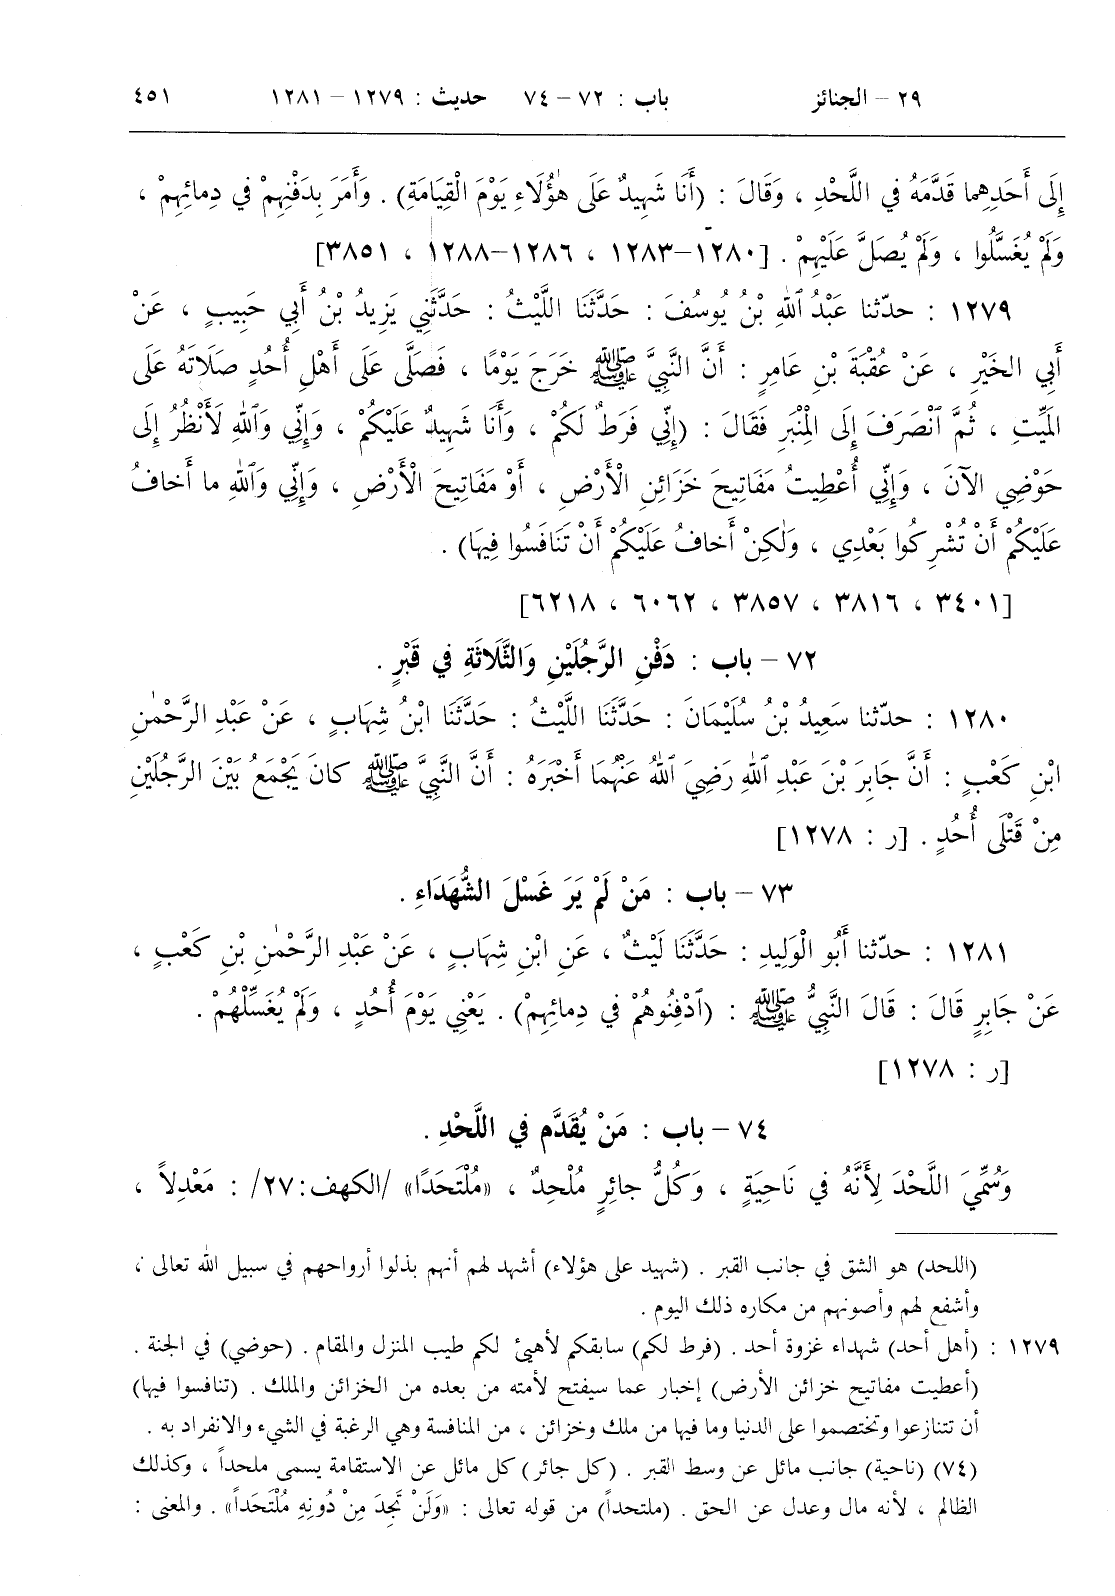 ٢٩ – الجنائز باب : ٧٢ – ٧٤ حديث : ١٢٧٩ – ١٢٨١ ٤٥١
إِلَى أَحَدِهِما قَدَّمَهُ في اللَّحْدِ ، وَقَالَ : (أَنَا شَهِيدٌ عَلَى هٰؤُلَاءِ يَوْمَ الْقِيَامَةِ) . وَأَمَرَ بِدَفْنِهِمْ في دِمائِهِمْ ،
وَلَمْ يُغَسَّلُوا ، وَلَمْ يُصَلَّ عَلَيْهِمْ . [١٢٨٠–١٢٨٣ ، ١٢٨٦–١٢٨٨ ، ٣٨٥١]
١٢٧٩ : حدّثنا عَبْدُ ٱللهِ بْنُ يُوسُفَ : حَدَّثَنَا اللَّيْثُ : حَدَّثَنِي يَزِيدُ بْنُ أَبِي حَبِيبٍ ، عَنْ
أَبِي الخَيْرِ ، عَنْ عُقْبَةَ بْنِ عَامِرٍ : أَنَّ النَّبِيَّ ﷺ خَرَجَ يَوْمًا ، فَصَلَّى عَلَى أَهْلِ أُحُدٍ صَلَاتَهُ عَلَى
المَيِّتِ ، ثُمَّ ٱنْصَرَفَ إِلَى الْمِنْبَرِ فَقَالَ : (إِنِّي فَرَطٌ لَكُمْ ، وَأَنَا شَهِيدٌ عَلَيْكُمْ ، وَإِنِّي وَٱللهِ لَأَنْظُرُ إِلَى
حَوْضِي الآنَ ، وَإِنِّي أُعْطِيتُ مَفَاتِيحَ خَزَائِنِ الْأَرْضِ ، أَوْ مَفَاتِيحَ الْأَرْضِ ، وَإِنِّي وَٱللهِ ما أَخافُ
عَلَيْكُمْ أَنْ تُشْرِكُوا بَعْدِي ، وَلٰكِنْ أَخافُ عَلَيْكُمْ أَنْ تَنَافَسُوا فِيهَا) .
[٣٤٠١ ، ٣٨١٦ ، ٣٨٥٧ ، ٦٠٦٢ ، ٦٢١٨]
٧٢ – باب : دَفْنِ الرَّجُلَيْنِ وَالثَّلَاثَةِ في قَبْرٍ .
١٢٨٠ : حدّثنا سَعِيدُ بْنُ سُلَيْمَانَ : حَدَّثَنَا اللَّيْثُ : حَدَّثَنَا ابْنُ شِهَابٍ ، عَنْ عَبْدِ الرَّحْمٰنِ
ابْنِ كَعْبٍ : أَنَّ جَابِرَ بْنَ عَبْدِ ٱللهِ رَضِيَ ٱللهُ عَنْهُمَا أَخْبَرَهُ : أَنَّ النَّبِيَّ ﷺ كانَ يَجْمَعُ بَيْنَ الرَّجُلَيْنِ
مِنْ قَتْلَى أُحُدٍ . [ر : ١٢٧٨]
٧٣ – باب : مَنْ لَمْ يَرَ غَسْلَ الشُّهَدَاءِ .
١٢٨١ : حدّثنا أَبُو الْوَلِيدِ : حَدَّثَنَا لَيْثٌ ، عَنِ ابْنِ شِهَابٍ ، عَنْ عَبْدِ الرَّحْمٰنِ بْنِ كَعْبٍ ،
عَنْ جَابِرٍ قَالَ : قَالَ النَّبِيُّ ﷺ : (ٱدْفِنُوهُمْ في دِمائِهِمْ) . يَعْنِي يَوْمَ أُحُدٍ ، وَلَمْ يُغَسِّلْهُمْ .
[ر : ١٢٧٨]
٧٤ – باب : مَنْ يُقَدَّم في اللَّحْدِ .
وَسُمِّيَ اللَّحْدَ لِأَنَّهُ في نَاحِيَةٍ ، وَكُلُّ جائِرٍ مُلْحِدٌ ، «مُلْتَحَدًا» /الكهف: ٢٧/ : مَعْدِلاً ،
(اللحد) هو الشق في جانب القبر . (شهيد على هؤلاء) أشهد لهم أنهم بذلوا أرواحهم في سبيل الله تعالى ،
وأشفع لهم وأصونهم من مكاره ذلك اليوم .
١٢٧٩ : (أهل أحد) شهداء غزوة أحد . (فرط لكم) سابقكم لأهيئ لكم طيب المنزل والمقام . (حوضي) في الجنة .
(أعطيت مفاتيح خزائن الأرض) إخبار عما سيفتح لأمته من بعده من الخزائن والملك . (تنافسوا فيها)
أن تتنازعوا وتختصموا على الدنيا وما فيها من ملك وخزائن ، من المنافسة وهي الرغبة في الشيء والانفراد به .
(٧٤) (ناحية) جانب مائل عن وسط القبر . (كل جائر) كل مائل عن الاستقامة يسمى ملحداً ، وكذلك
الظالم ، لأنه مال وعدل عن الحق . (ملتحداً) من قوله تعالى : «وَلَنْ تَجِدَ مِنْ دُونِهِ مُلْتَحَداً» . والمعنى :